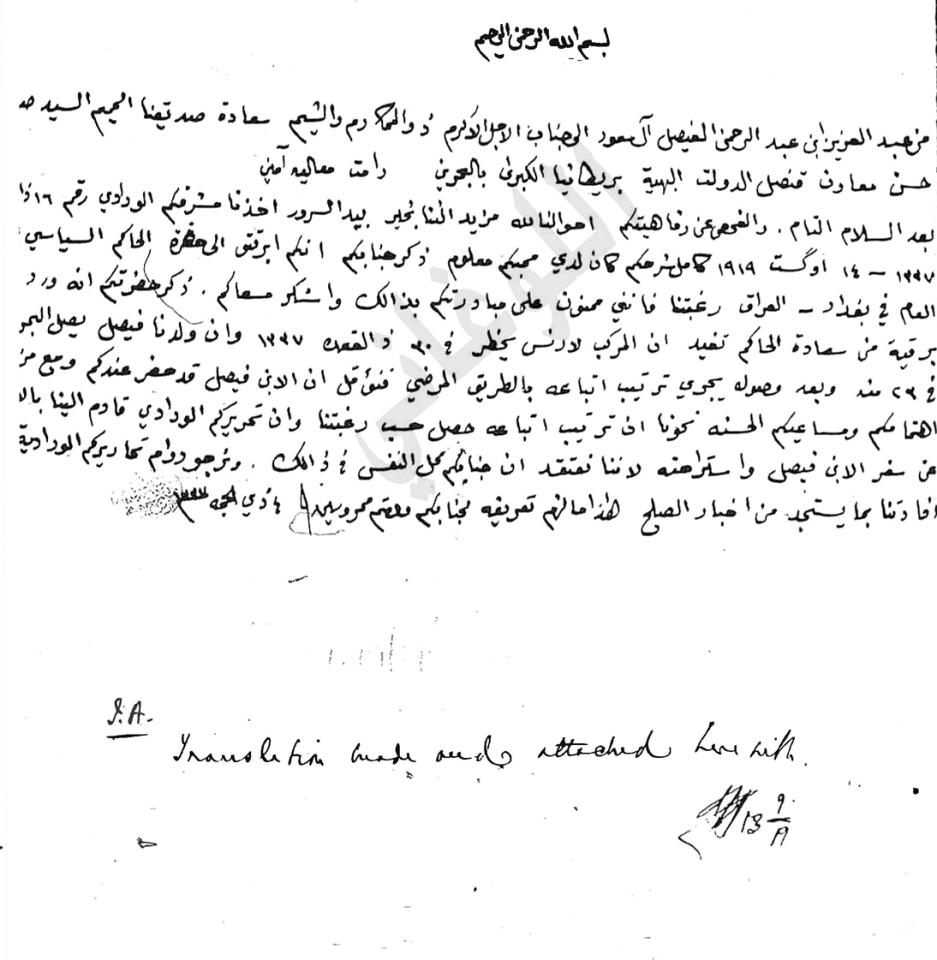 بسم الله الرحمن الرحيم
من عبد العزيز ابن عبد الرحمن الفيصل آل سعود الى جناب الاجل الاكرم ذو المكارم والشيم سعادة صديقنا الحميم السيد صد
حسن معاون قنصل الدولت البهية بريطانيا الكبرى بالبحرين دامت معاليه آمين
بعد السلام التام . والفحص عن رفاهيتكم احوالنا لله مزيد المنا بخير بيد السرور اخذنا مشرفكم الودادي رقم ١٦ ذا
١٣٣٧ – ١٤ اوگست ١٩١٩ كامل شرحكم كان لدي محبكم معلوم ذكر جنابكم انكم ابرقتو الى حضرة الحاكم السياسي
العام في بغداد – العراق رغبتنا فانني ممنون على مبادرتكم بذالك واشكر مسعاكم . ذكر حضرتكم انه ورد
برقية من سعادة الحاكم تفيد ان المركب لارنس يخطر في ٣٠ ذ القعده ١٣٣٧ وان ولدنا فيصل يصل البحر
في ٢٦ منه وبعد وصوله يجري ترتيب اتباعه بالطريق المرضي فنؤمل ان الابن فيصل قد حضر عندكم ومع مز
اهتمامكم ومساعيكم الحسنه نحونا ان ترتيب اتباعه حصل حسب رغبتنا وان تحريركم الودادي قادم الينا بالا
عن سفر الابن فيصل واستراحته لاننا نعتقد ان جنابكم محل النفس في ذالك . ونرجو دوام تحاريركم الودادية
افادتنا بما يستجد من اخبار الصلح هذا مالزم تعريفه لجنابكم ودمتم محروسين ٤ ذي الحجه ١٣٣٧
P.A.
Translation made and attached herewith.
13 9/19
الوفاي